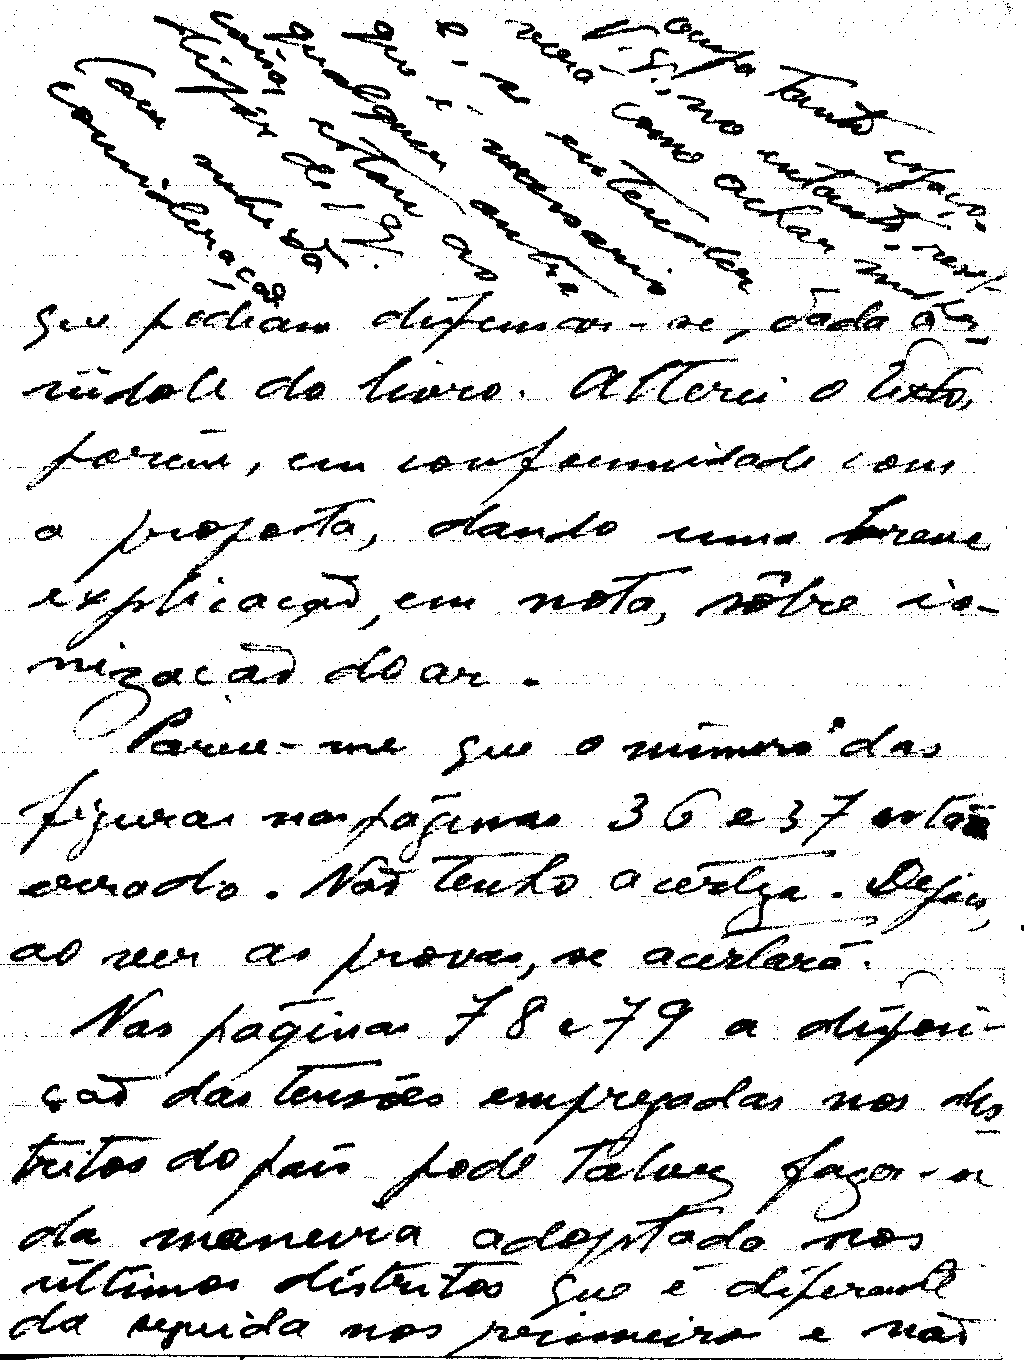 ocupa tanto espaço.
V. S., no entanto, resol-
verá como achar melhor
e - se entender
que é necessário
qualquer outra
coisa, estou ao
dispôr de V. S.
Com subida
consideração
que pediam dispensar-se, dada a
indole do livro. Alterei o texto,
porém, em conformidade com
a proposta, dando uma breve
explicação, em nota, sôbre io-
nização do ar.
Parece-me que o número das
figuras nas páginas 36 e 37 está
errado. Não tenho a certeza. Depois,
ao ver as provas, se acertará.
Nas páginas 78 e 79 a disposi-
ção das tensões empregadas nos dis
tritos do país pode talvez fazer-se
da maneira adoptada nos
últimos distritos que é diferente
da seguida nos primeiros e não